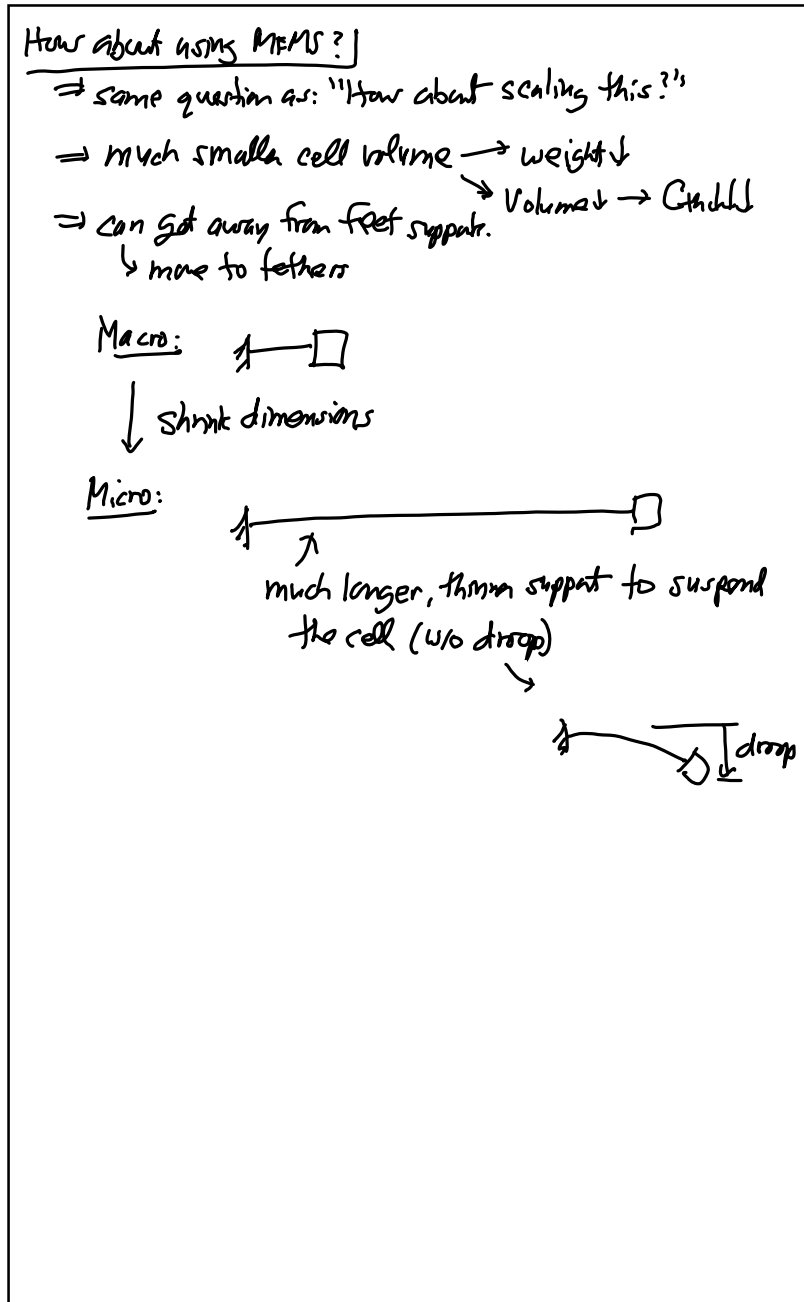 How about using MEMS?
⇒ same question as: "How about scaling this?"
⇒ much smaller cell volume → weight↓
↘ Volume↓ →
⇒ can get away from feet support.
↳ move to tethers
Macro:
↓ shrink dimensions
Micro:
much longer, thinner support to suspend
the cell (w/o droop)
droop